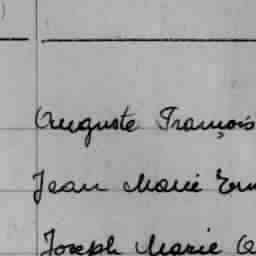 Auguste François
Jean Marie
Joseph Marie